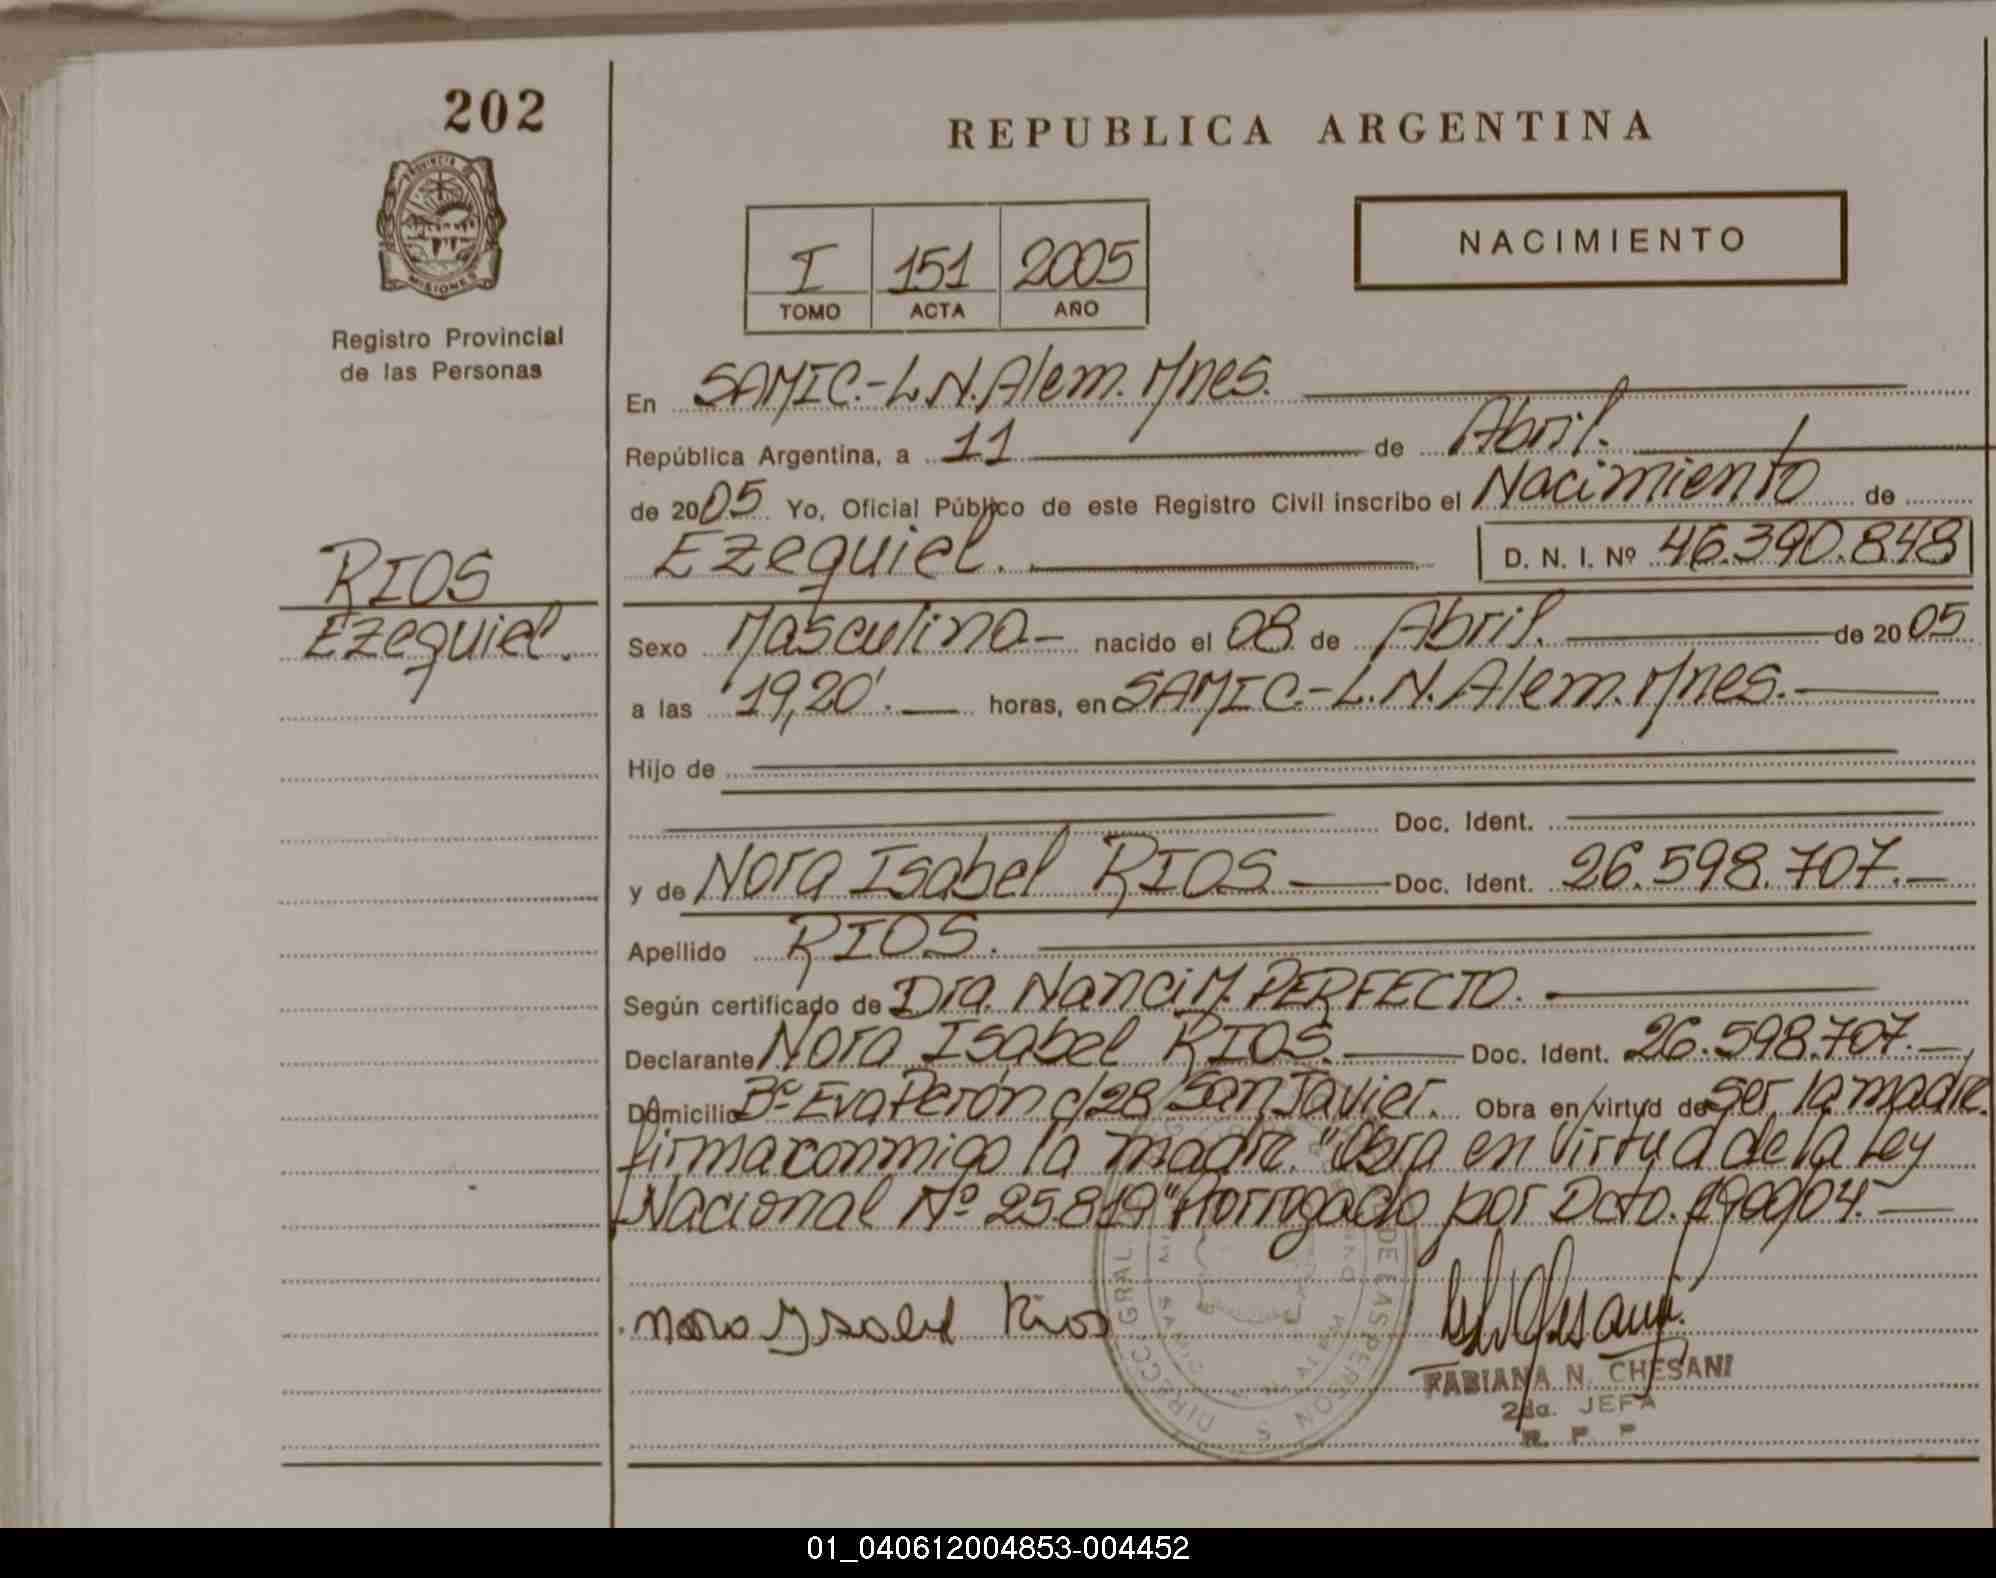 202
PROVINCIA DE
MISIONES
Registro Provincial
de las Personas
RIOS
Ezequiel.
REPUBLICA ARGENTINA
I 151 2005
TOMO ACTA AÑO
NACIMIENTO
En SAMIC.-L.N.Alem.Mnes.
República Argentina, a 11 de Abril.
de 2005 Yo, Oficial Público de este Registro Civil inscribo el Nacimiento de
Ezequiel. D. N. I. Nº 46.390.848
Sexo Masculino- nacido el 08 de Abril. de 2005
a las 19,20'. horas, en SAMIC.-L.N.Alem.Mnes.-
Hijo de
Doc. Ident.
y de Nora Isabel RIOS Doc. Ident. 26.598.707.-
Apellido RIOS.
Según certificado de Dra. Nanci M. PERFECTO.
Declarante Nora Isabel RIOS. Doc. Ident. 26.598.707.-
Domicilio Bº Eva Perón c/28/San Javier. Obra en virtud de ser la madre
firma conmigo la madre. "Obra en virtud de la Ley
Nacional Nº 25819" Prorrogado por Dcto. 1900/04.-
Nora Ysabel Rios
FABIANA N. CHESANI
2da. JEFA
R. P. P
DIRECC. GRAL. DE LAS PERSONAS
01_040612004853-004452